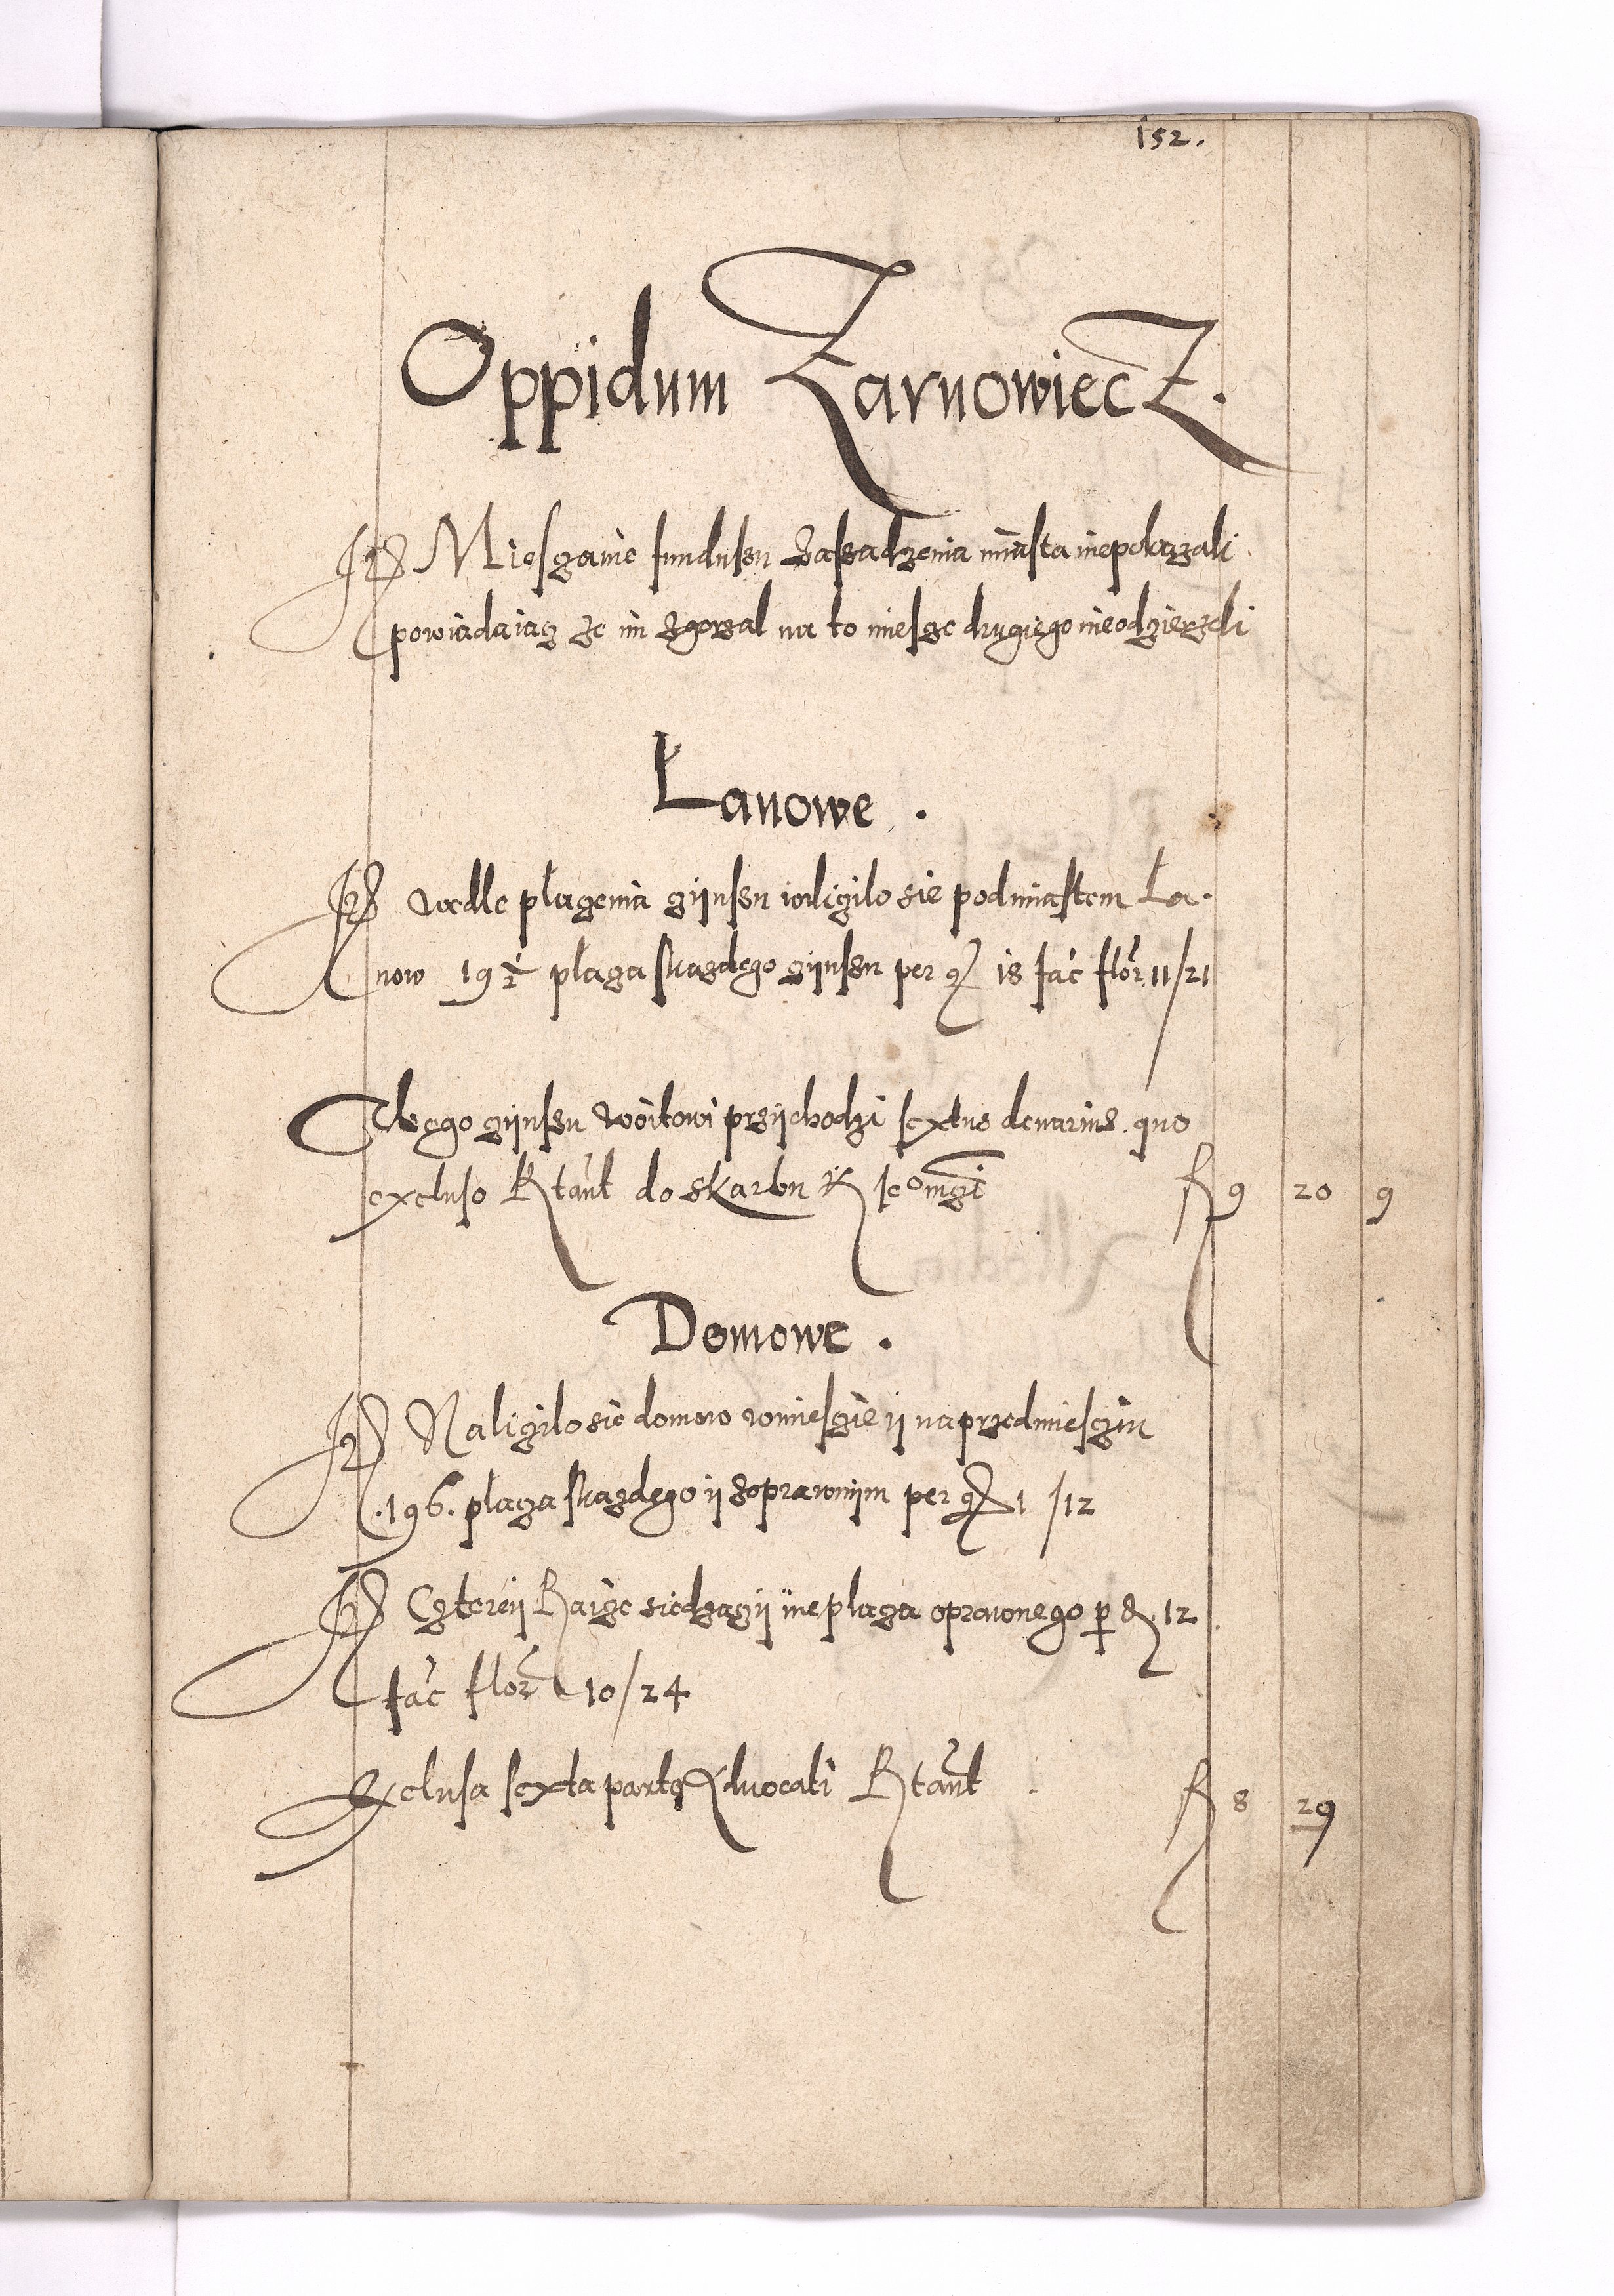 152.
Oppidum ZarnowiecZ.
Jtem Miesczanie fundussu zassadzenia miasta niepokazali
powiadaiacz ze im zgorzal na to miescze drugiego nieodzierzeli
Łanowe.
Jtem wedle placzenia czijnssu wliczilo sie pod miastem La-
now 19 ½ placza skazdego czijnssu per gr 18 fac flor 11/21
Stego czijnssu woitowi przijchodzi sextus denarius. quo
excluso Rtant do skarbu K Jeo mczi fl 9 20 9
Domowe.
Jtem Naliczilo sie domow wmiesczie ij na przedmiesciu
.196. placza skazdego ij zoprawnijm per gr 1 /12
Jtem Cztereij Raicze siedzaczij nieplacza oprawnego per den. 12
fac flor 10/24
Exclusa sexta parte Aduocati Rtant fl 8 29